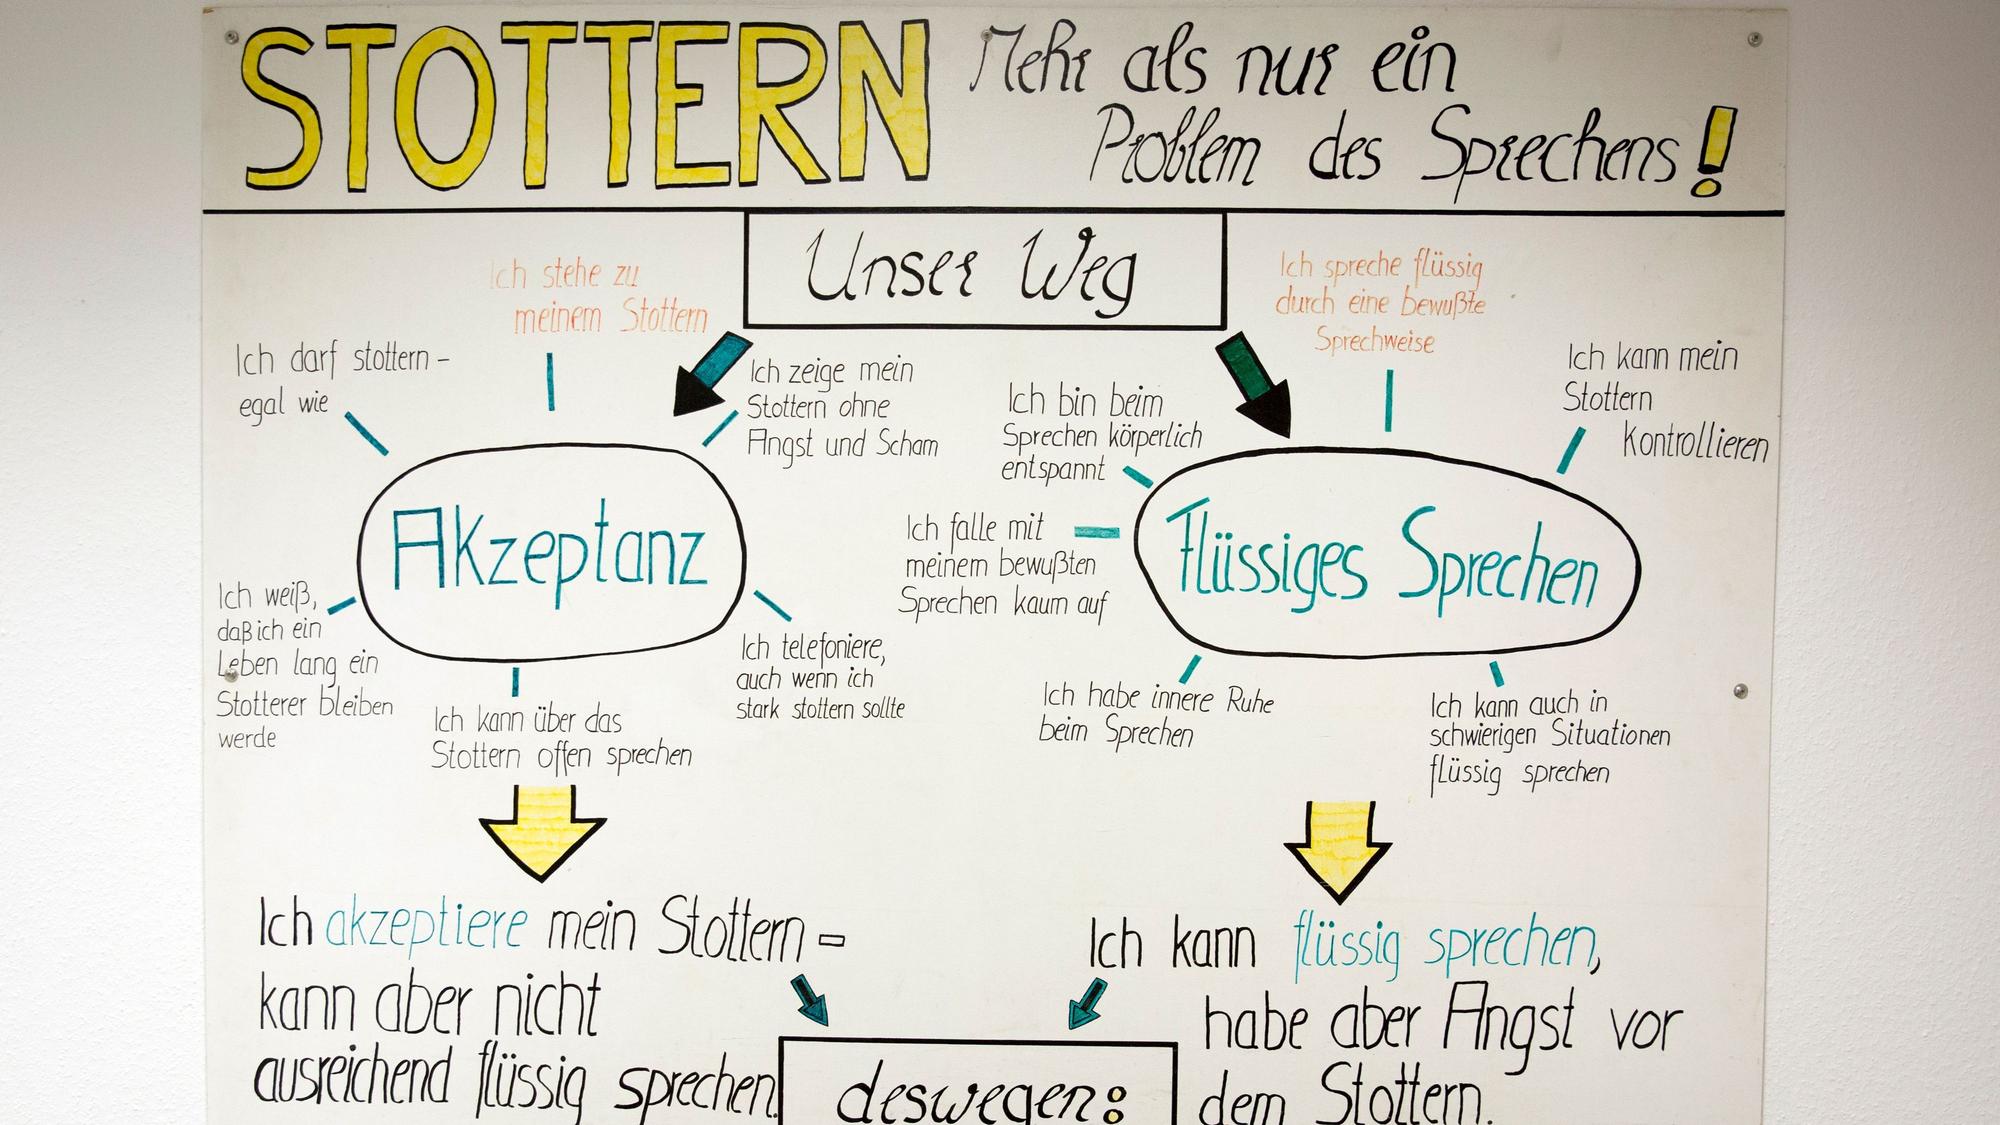 STOTTERN
Mehr als nur ein
Problem des Sprechens!
Unser Weg
Ich stehe zu
meinem Stottern
Ich darf stottern -
egal wie
Ich zeige mein
Stottern ohne
Angst und Scham
Akzeptanz
Ich weiß,
daß ich ein
Leben lang ein
Stotterer bleiben
werde
Ich kann über das
Stottern offen sprechen
Ich telefoniere,
auch wenn ich
stark stottern sollte
Ich spreche flüssig
durch eine bewußte
Sprechweise
Ich bin beim
Sprechen körperlich
entspannt
Ich kann mein
Stottern
Kontrollieren
Ich falle mit
meinem bewußten
Sprechen kaum auf
Flüssiges Sprechen
Ich habe innere Ruhe
beim Sprechen
Ich kann auch in
schwierigen Situationen
flüssig sprechen
Ich akzeptiere mein Stottern -
kann aber nicht
ausreichend flüssig sprechen.
Ich kann flüssig sprechen,
habe aber Angst vor
dem Stottern.
deswegen: